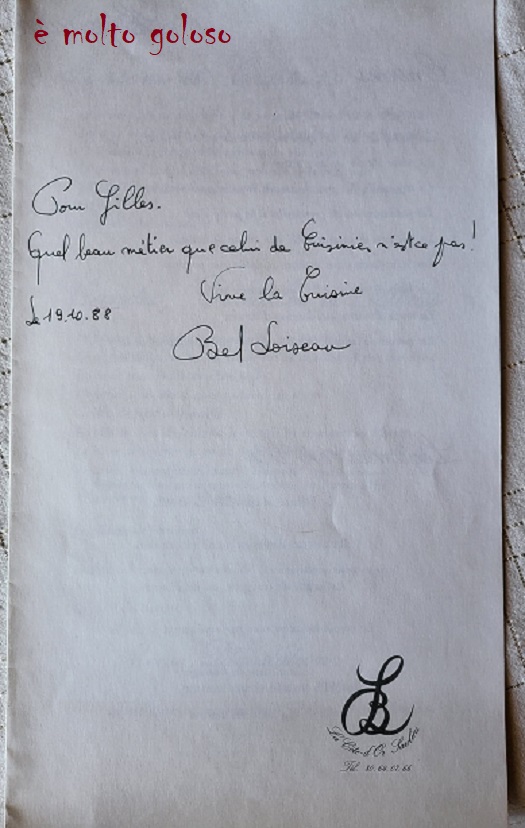 è molto goloso
Pour Gilles.
Quel beau métier que celui de Cuisinier n'est ce pas!
Vive la Cuisine
Le 19.10.88
Bef Loiseau
La Côte d'Or Saulieu
Tél.